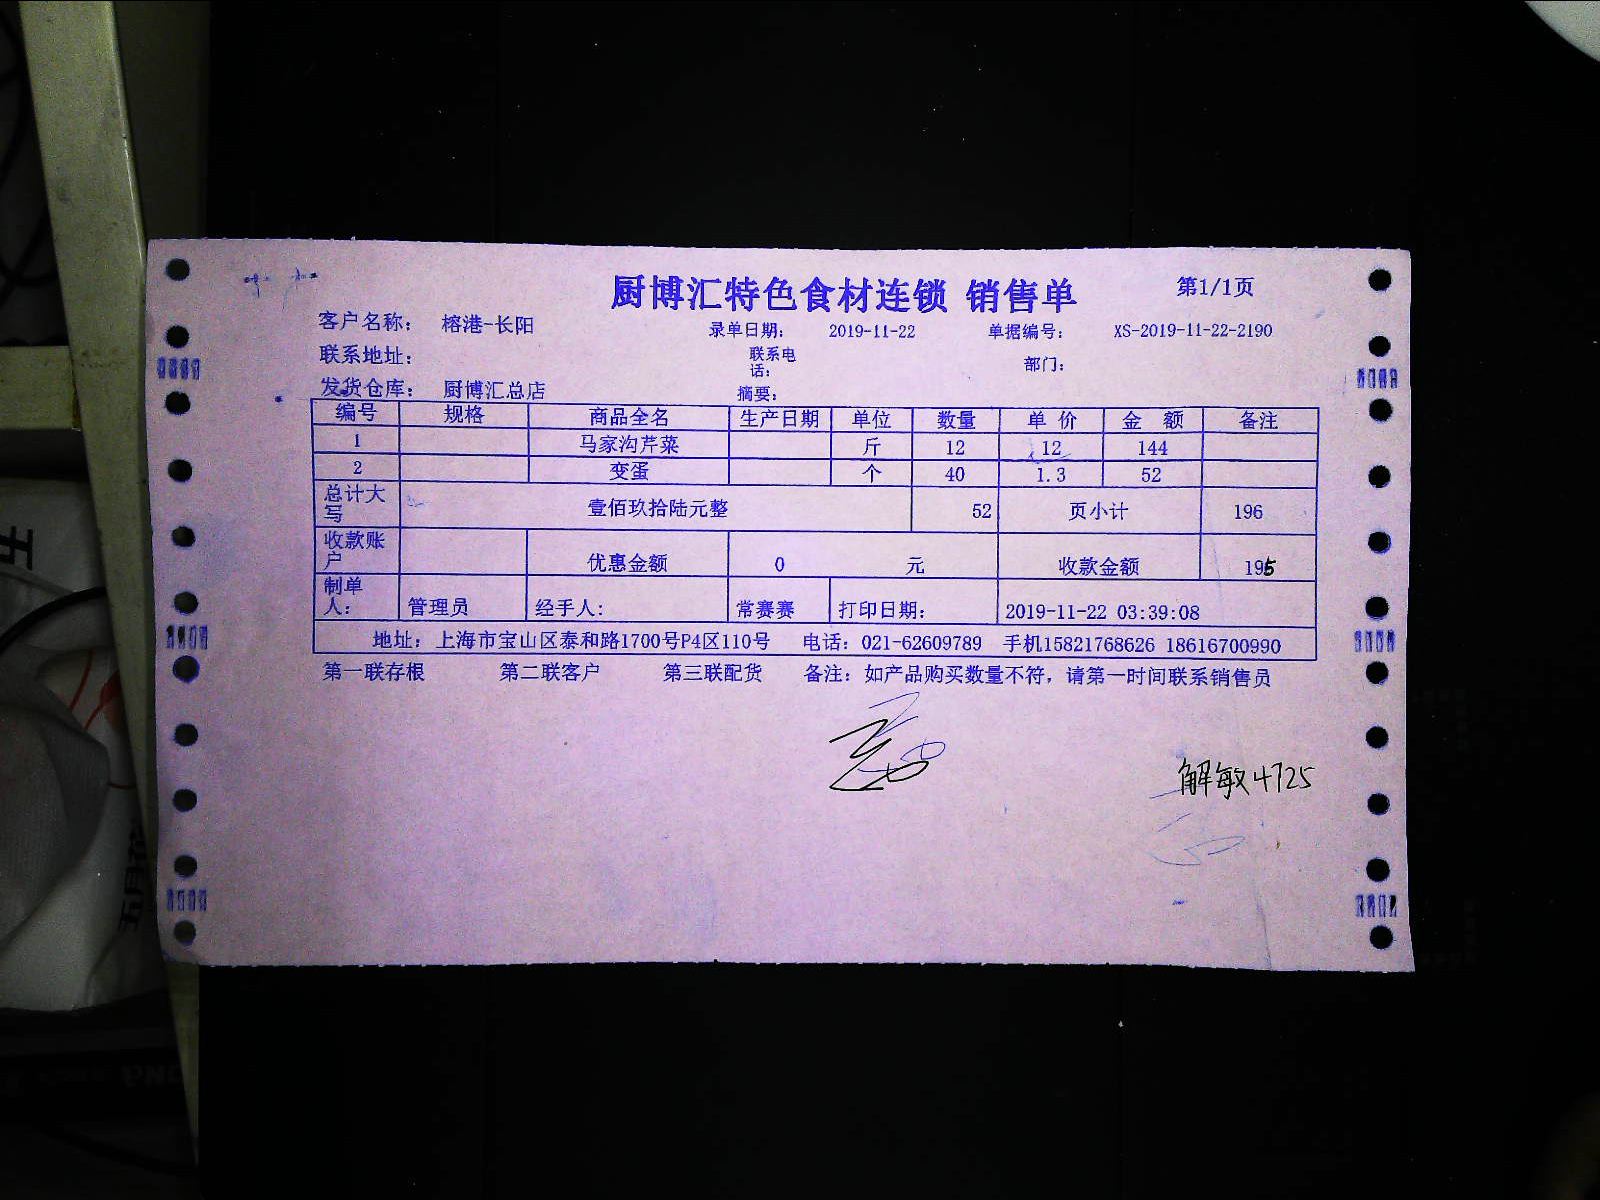 厨博汇特色食材连锁 销售单 第1/1页
客户名称: 榕港-长阳 录单日期: 2019-11-22 单据编号: XS-2019-11-22-2190
联系地址: 联系电话: 部门:
发货仓库: 厨博汇总店 摘要:
编号 规格 商品全名 生产日期 单位 数量 单 价 金 额 备注
1 马家沟芹菜 斤 12 12 144
2 变蛋 个 40 1.3 52
总计大写 壹佰玖拾陆元整 52 页小计 196
收款账户 优惠金额 0 元 收款金额 195
制单人: 管理员 经手人: 常赛赛 打印日期: 2019-11-22 03:39:08
地址: 上海市宝山区泰和路1700号P4区110号 电话: 021-62609789 手机15821768626 18616700990
第一联存根 第二联客户 第三联配货 备注: 如产品购买数量不符, 请第一时间联系销售员
解敏4725